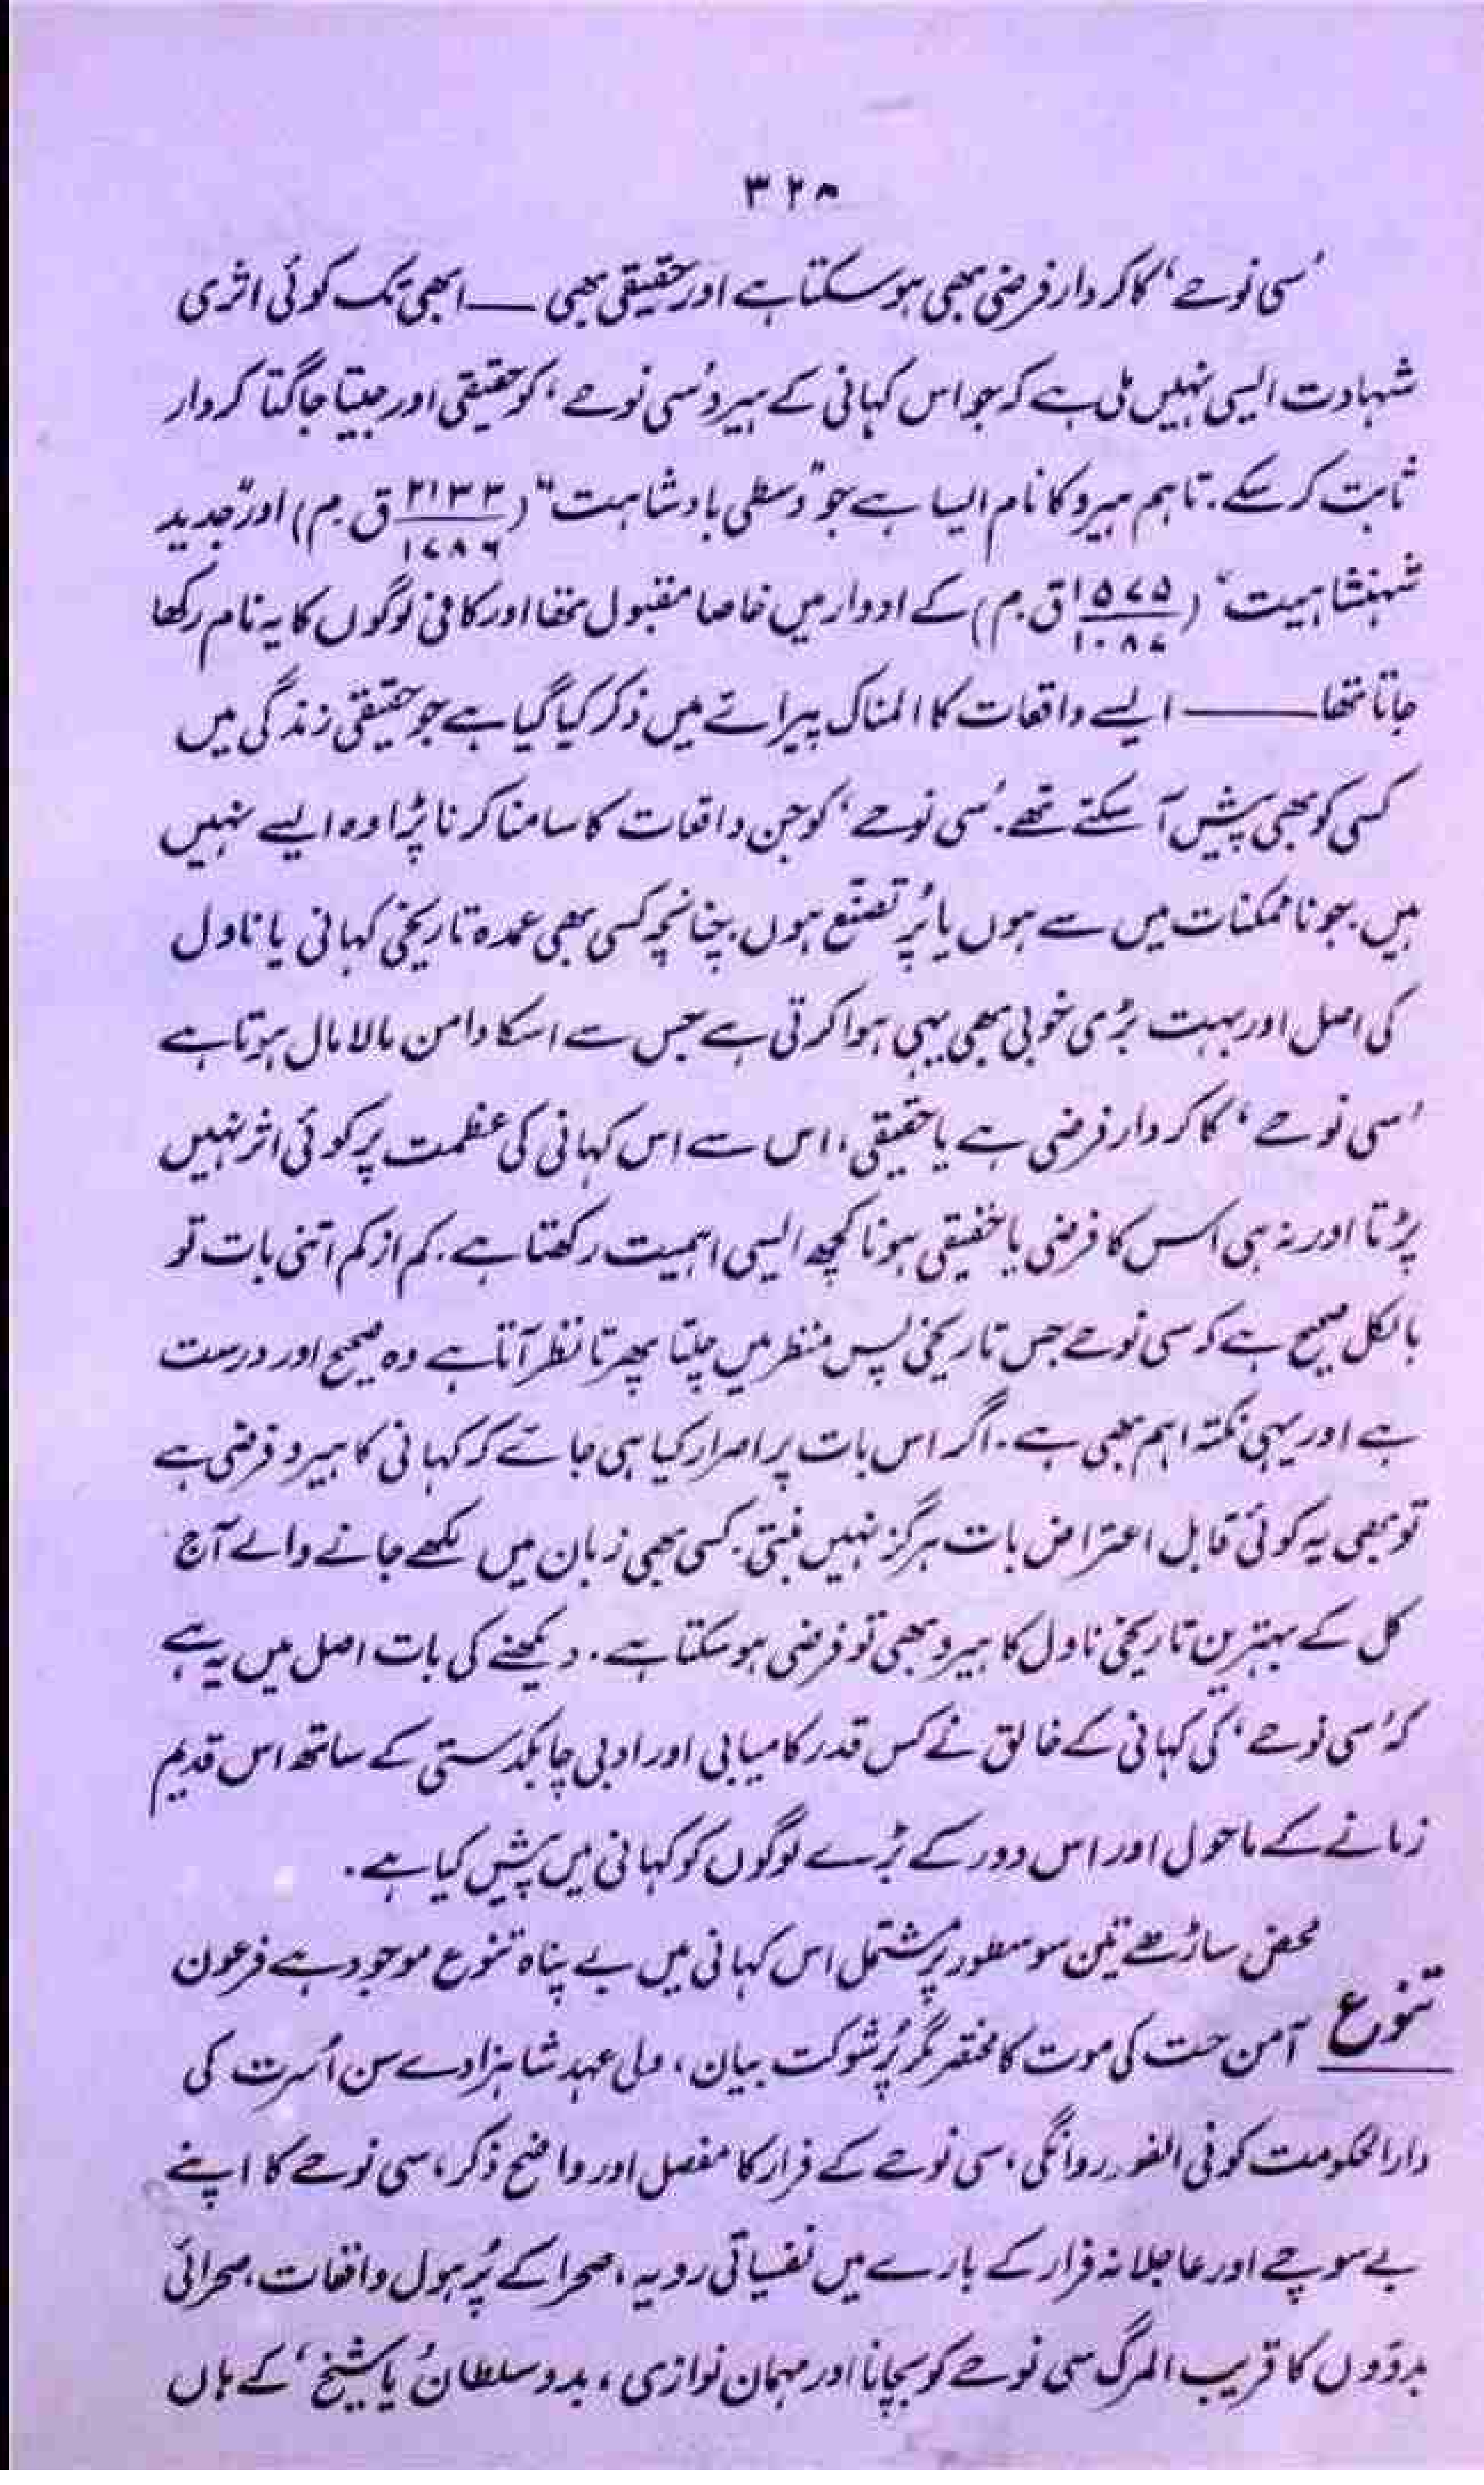 ۳۲۸
’سی نوحے‘ کا کردار فرضی بھی ہو سکتا ہے اور حقیقی بھی — ابھی تک کوئی اثری
شہادت ایسی نہیں ملی ہے کہ جو اس کہانی کے ہیرو ’سی نوحے‘ کو حقیقی اور جیتا جاگتا کردار
ثابت کر سکے۔ تاہم ہیرو کا نام ایسا ہے جو ”وسطی بادشاہت“ (۲۱۳۳/۱۷۸۶ ق۔م) اور ”جدید
شہنشاہیت“ (۱۵۷۵/۱۰۸۷ ق۔م) کے ادوار میں خاصا مقبول تھا اور کافی لوگوں کا یہ نام رکھا
جاتا تھا — ایسے واقعات کا المناک پیرائے میں ذکر کیا گیا ہے جو حقیقی زندگی میں
کسی کو بھی پیش آ سکتے تھے۔ ’سی نوحے‘ کو جن واقعات کا سامنا کرنا پڑا وہ ایسے نہیں
ہیں۔ جو ناممکنات میں سے ہوں یا پُر تصنّع ہوں۔ چنانچہ کسی بھی عمدہ تاریخی کہانی یا ناول
کی اصل اور بہت بڑی خوبی بھی یہی ہوا کرتی ہے جس سے اسکا دامن مالا مال ہوتا ہے
’سی نوحے‘ کا کردار فرضی ہے یا حقیقی، اس سے اس کہانی کی عظمت پر کوئی اثر نہیں
پڑتا اور نہ ہی اس کا فرضی یا حقیقی ہونا کچھ ایسی اہمیت رکھتا ہے۔ کم از کم اتنی بات تو
بالکل صحیح ہے کہ سی نوحے جس تاریخی پس منظر میں چلتا پھرتا نظر آتا ہے وہ صحیح اور درست
ہے اور یہی نکتہ اہم بھی ہے۔ اگر اس بات پر اصرار کیا ہی جائے کہ کہانی کا ہیرو فرضی ہے
تو بھی یہ کوئی قابل اعتراض بات ہرگز نہیں بنتی۔ کسی بھی زبان میں لکھے جانے والے آج
کل کے بہترین تاریخی ناول کا ہیرو بھی تو فرضی ہو سکتا ہے۔ دیکھنے کی بات اصل میں یہ ہے
کہ ’سی نوحے‘ کی کہانی کے خالق نے کس قدر کامیابی اور ادبی چابکدستی کے ساتھ اس قدیم
زمانے کے ماحول اور اس دور کے بڑے لوگوں کو کہانی میں پیش کیا ہے۔
محض ساڑھے تین سو سطور پر مشتمل اس کہانی میں بے پناہ تنوع موجود ہے فرعون
تنوع
آمن حت کی موت کا مختصر مگر پُر شوکت بیان، ولی عہد شاہزادے سن اُسرت کی
دارالحکومت کو فی الفور روانگی، سی نوحے کے فرار کا مفصل اور واضح ذکر، سی نوحے کا اپنے
بے سوچے اور عاجلانہ فرار کے بارے میں نفسیاتی رویہ، صحرا کے پُر ہول واقعات، صحرائی
بدوّوں کا قریب المرگ سی نوحے کو بچانا اور مہمان نوازی، بدو سلطان ’یا شیخ‘ کے ہاں